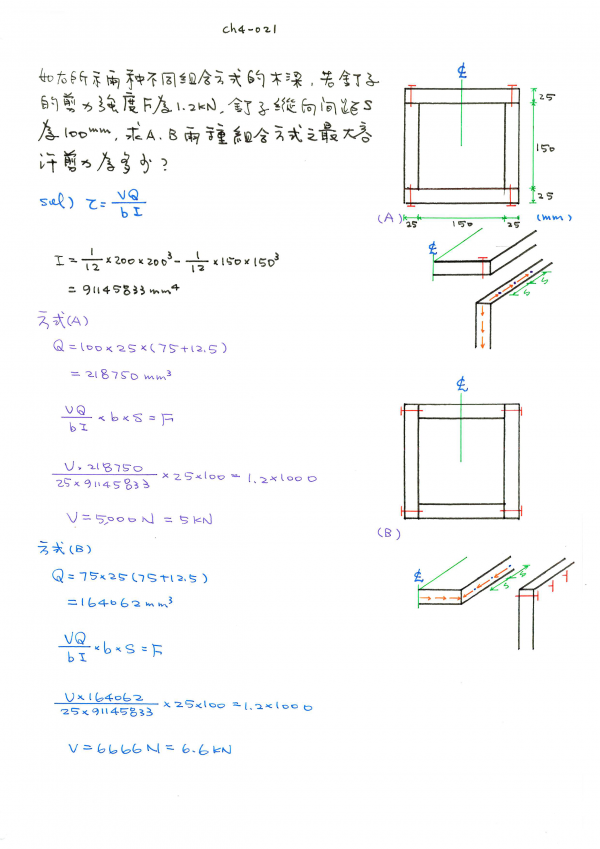 ch4-021
如右所示兩种不同組合方式的木梁,若釘子
的剪力強度F為1.2kN,釘子縱向間距S
為100mm,求A、B兩種組合方式之最大容
許剪力為多少?
sol) τ = VQ / bI
I = 1/12 × 200 × 200³ - 1/12 × 150 × 150³
= 91145833 mm⁴
方式(A)
Q = 100 × 25 × (75+12.5)
= 218750 mm³
VQ / bI × b × S = F
V · 218750 / 25 × 91145833 × 25 × 100 = 1.2 × 1000
V = 5,000 N = 5 kN
方式(B)
Q = 75 × 25 (75+12.5)
= 164062 mm³
VQ / bI × b × S = F
V × 164062 / 25 × 91145833 × 25 × 100 = 1.2 × 1000
V = 6666 N = 6.6 kN
℄
25
150
25
(A) 25 150 25 (mm)
℄
S
S
℄
(B)
℄
S
S